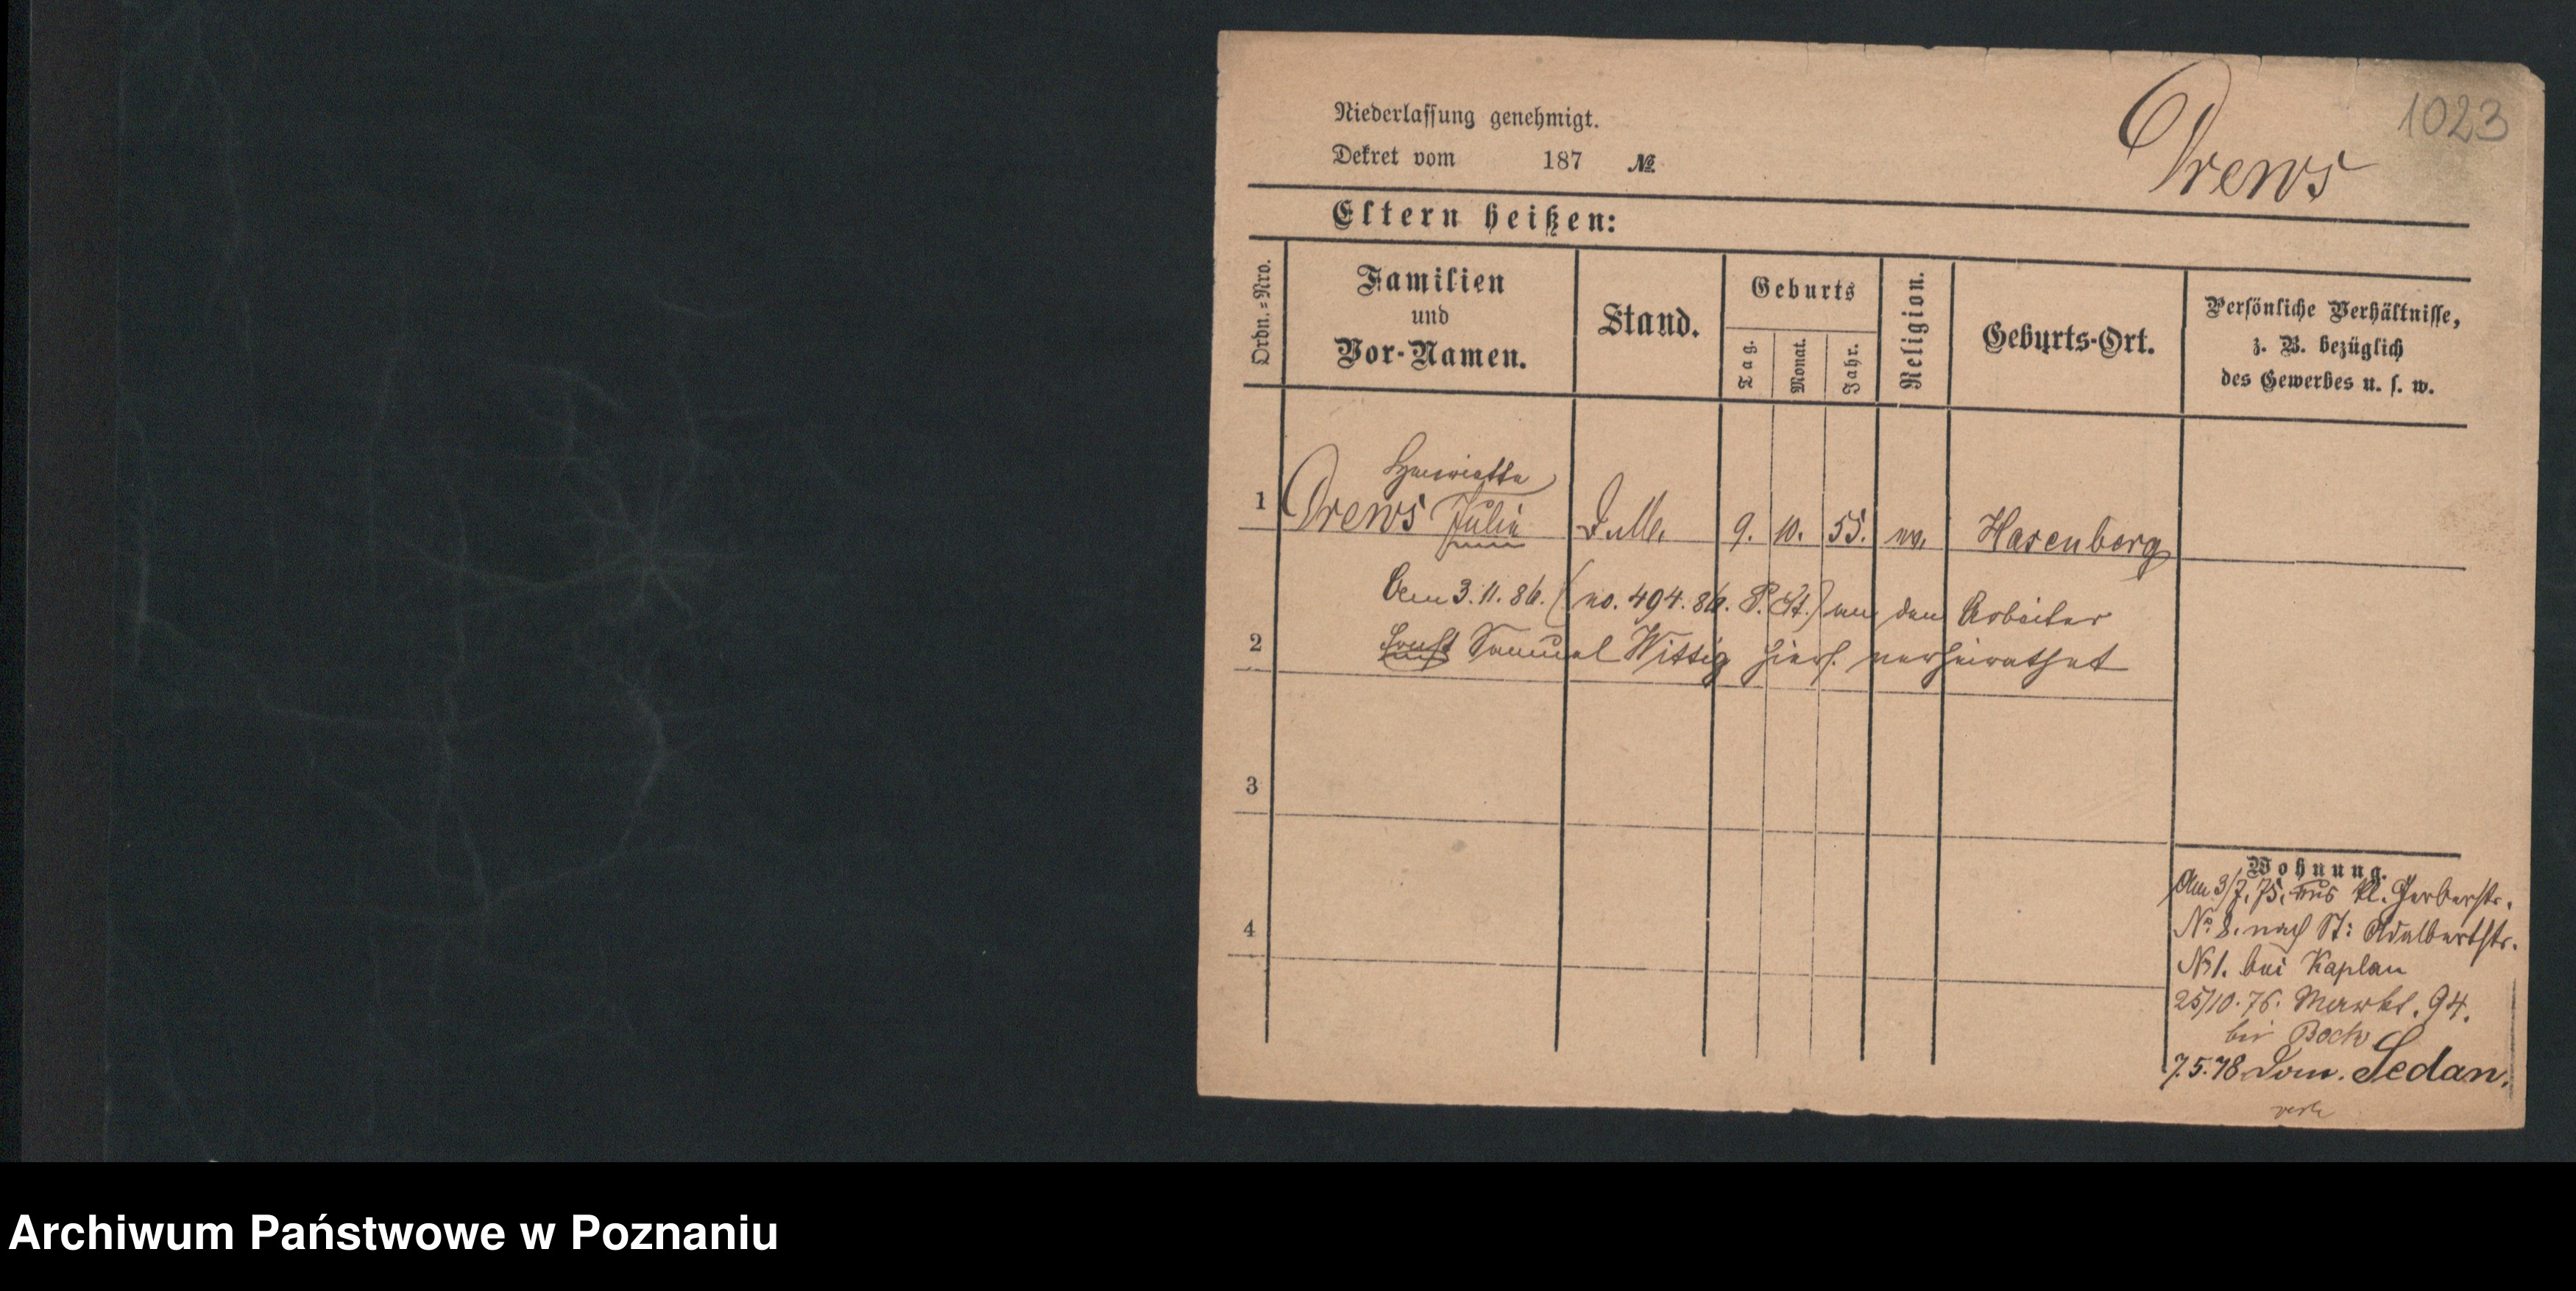 1023
Drews
Niederlassung genehmigt.
Dekret vom 187 №
Eltern heißen:
Ordn.-Nro.
Familien
und
Vor-Namen.
Stand.
Geburts
Tag.
Monat.
Jahr.
Religion.
Geburts-Ort.
Persönliche Verhältnisse,
z. B. bezüglich
des Gewerbes u. s. w.
Henriette
1 Drews Julie 9. 10. 55. ev. Hasenberg
Am 3.11.86. (no. 494.86. P. St.) an den Arbeiter
2 Samuel Wittig hiers. verheirathet
3
4
Wohnung.
Am 3/7.75. aus kl. Gerberstr.
No 8. nach St: Adalbertstr.
No 1. bei Kaplan
25/10.76. Markt. 94.
bei Bock
7.5.78 Dom. Sedan.
Archiwum Państwowe w Poznaniu